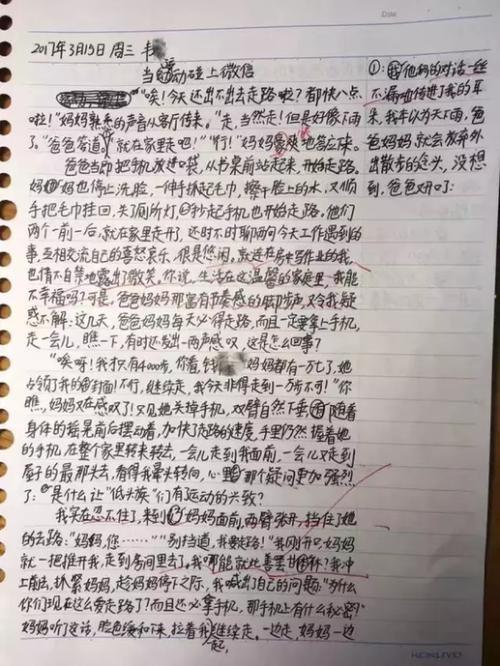 2017年3月15日 周三
当运动碰上微信
"唉!今天还出不出去走路啦?都快八点
啦!"妈妈熟悉的声音从客厅传来。"走,当然走!但是好像下雨
了。"爸爸答道,"就在家里走吧!""行!"妈妈爽快地答应来。
爸爸当即把手机放进口袋,从书桌前站起来,开始走路。
妈妈也停止洗脸,一伸手抓起毛巾,擦干脸上的水,又顺
手把毛巾挂回,关了厕所灯,抄起手机也开始走路。他们
两个一前一后,就在家里走开了,还时不时聊两句今天工作遇到的
事,互相交流自己的喜怒哀乐,很是悠闲。就连在房中写作业的我,
也情不自禁地露出了微笑。你说,生活在这温馨的家庭里,我能
不幸福吗?可是,爸爸妈妈那富有节奏感的脚步声,又令我疑
惑不解:这几天,爸爸妈妈每天必得走路,而且一定要拿上手机,
走一会儿,瞧一下,有时还发出一两声感叹,这是怎么回事?
"唉呀!我才只有4000步,你看,钱 妈妈都有一万七了,她
占领了我的封面!不行,继续走,我今天非得走到一万步不可!"你
瞧,妈妈又在感叹了!只见她关掉手机,双臂自然下垂,随着
身体的摇晃前后摆动着,加快了走路的速度,手里仍然握着她
的手机,在整个家里转来转去,一会儿走到我面前,一会儿又走到
屋子的最那头去,看得我晕头转向,心里那个疑问更加强烈
了:是什么让"低头族"们有运动的兴致?
我实在忍不住了,来到妈妈面前,两臂张开,挡住了她
的去路:"妈妈,您……""别挡道,我要走路!"我刚开口,妈妈
就一把推开我,走到房间里去了。我哪能就此善罢甘休?我冲
上前去,抓紧妈妈,趁妈妈停下之际,我喊出了自己的问题:"为什么
你们现在这么爱走路了?而且还必拿手机,那手机上有什么秘密?"
妈妈听了这话,脸色缓和下来,拉着我一起继续走。一边走,妈妈一边
①:他们的对话一丝
不漏地传进了我的耳
朵,我本以为天下雨,爸
爸妈妈就会放弃外
出散步的念头,没想
到,爸爸开口了:
Date
KOKUYO